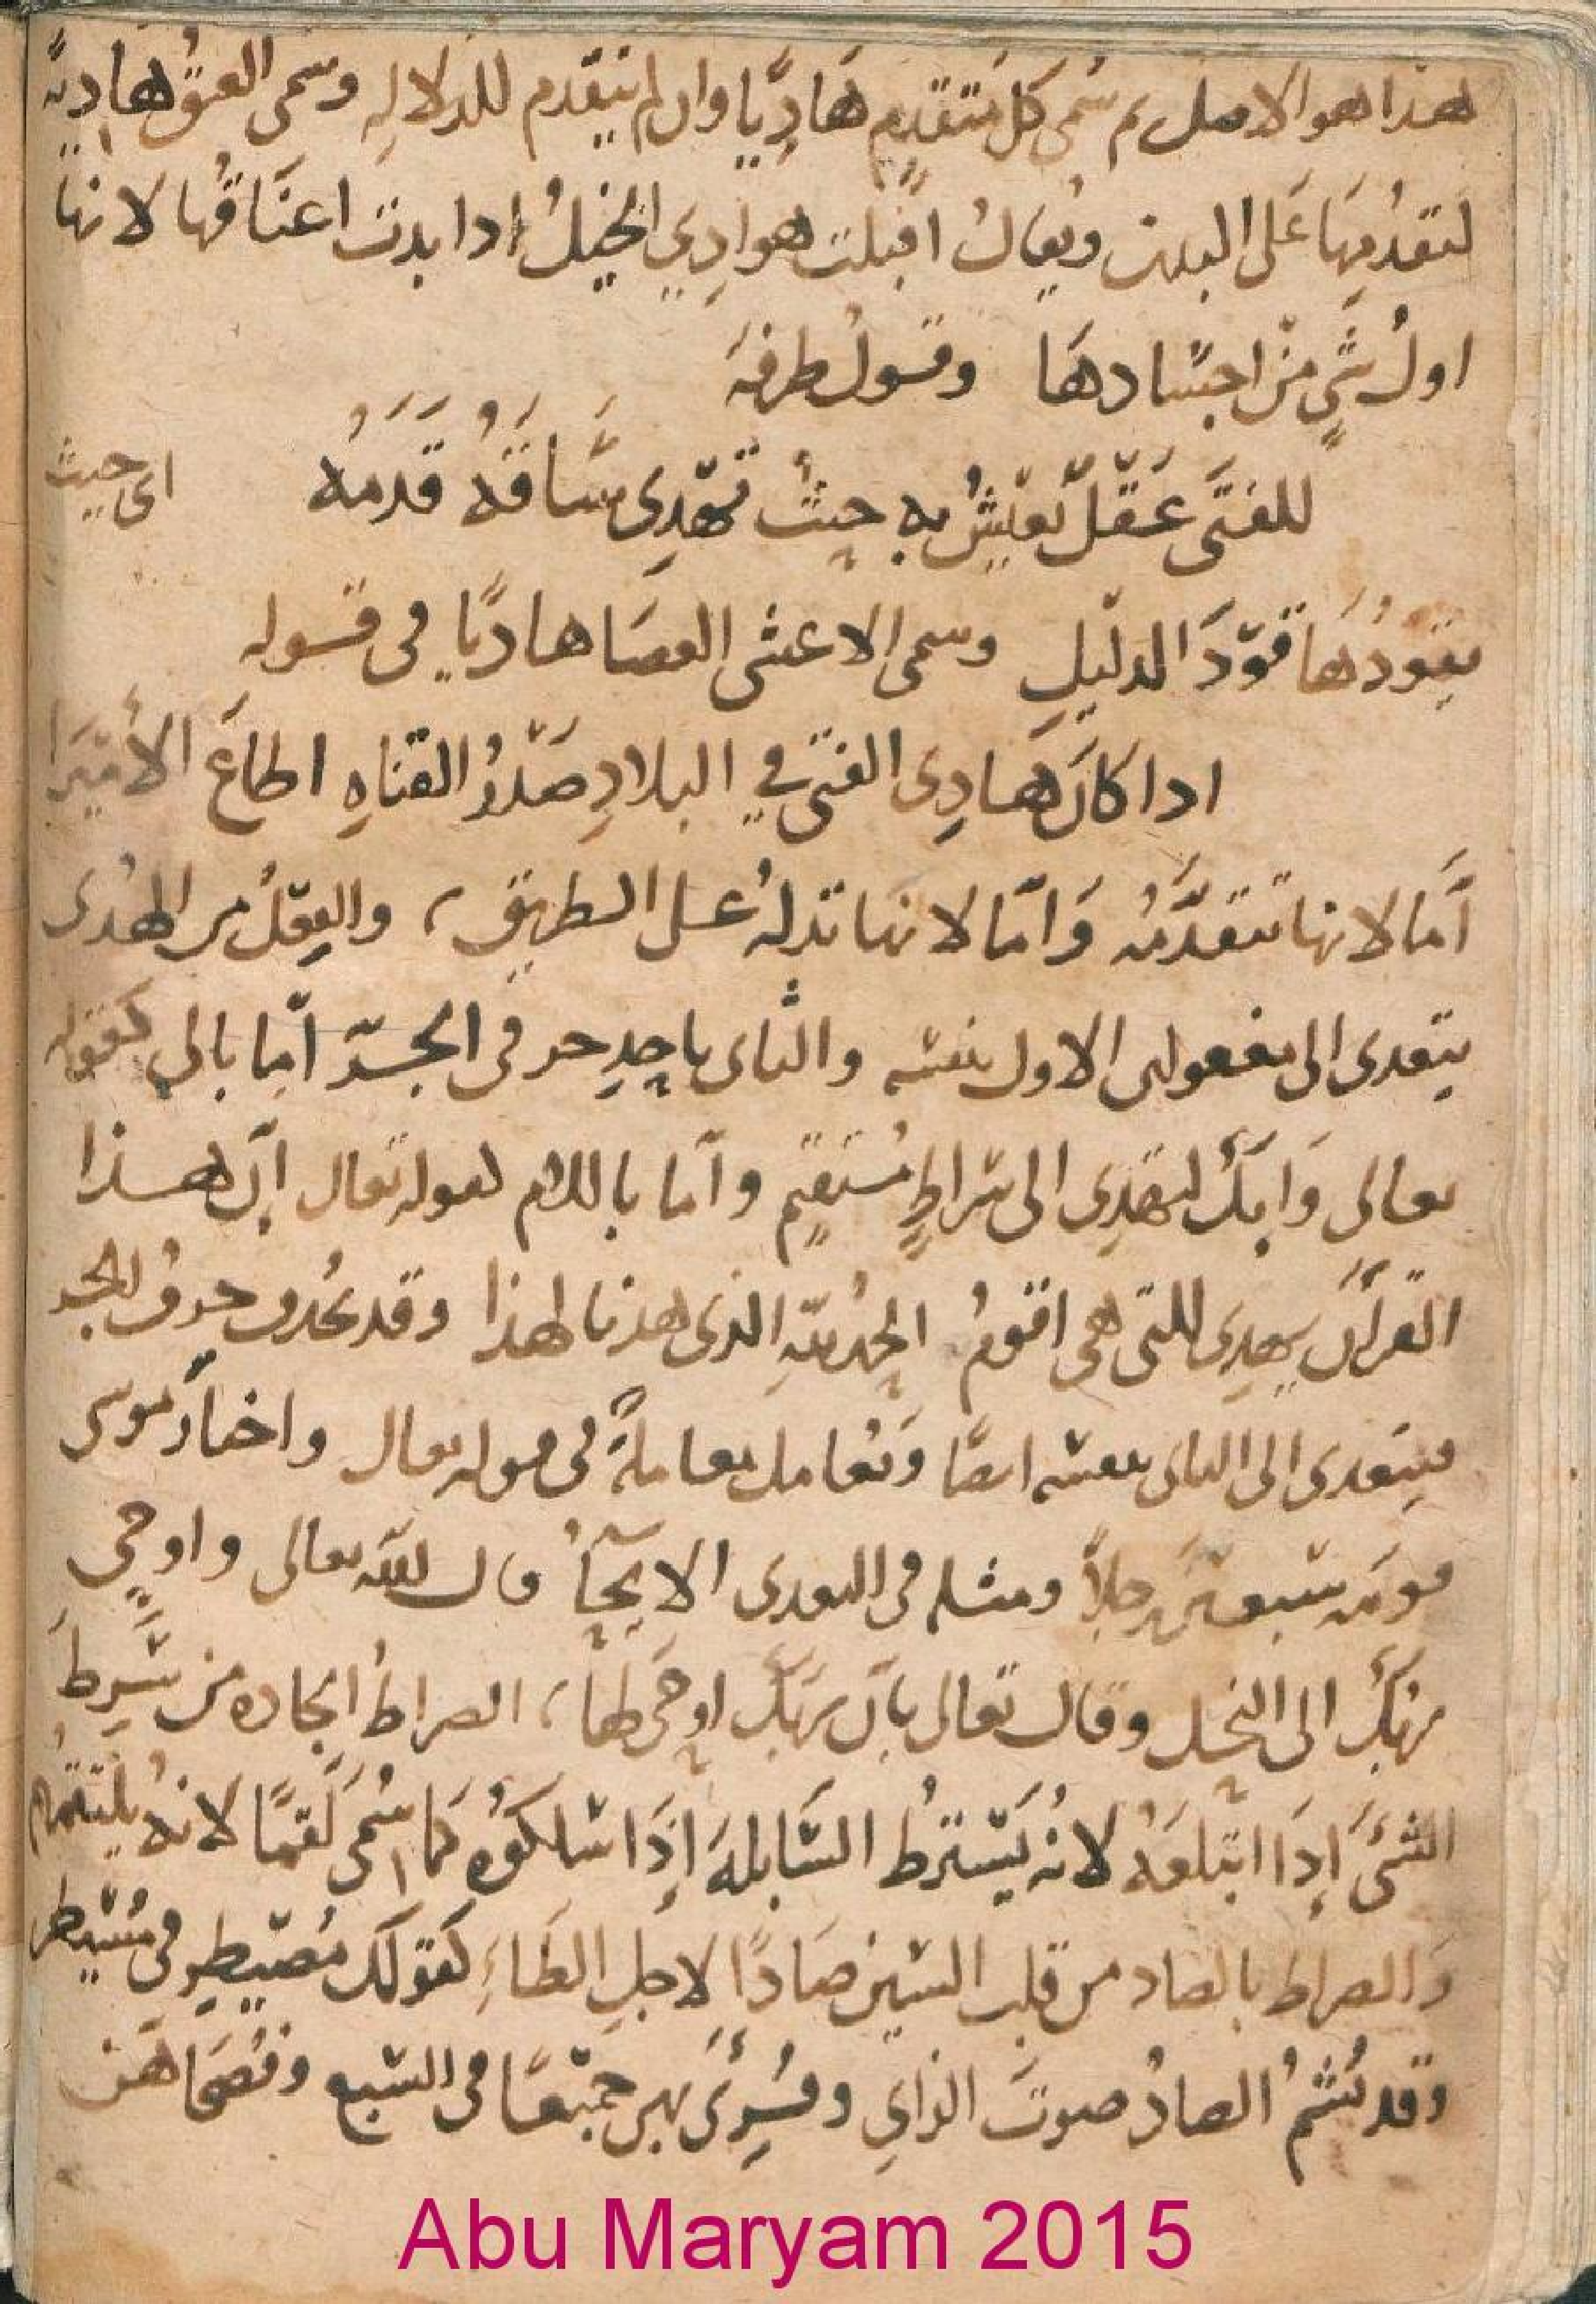 هذا هو الاصل ثم سُمى كل متقدم هَادِيًا وان لم يتقدم للدلالهِ وسمى العنقُ هاديةً
لتقدُمِهَا عَلى البدن ويُقالُ اقبلت هوادِي الخيلُ ادا بدت اعنَاقُها لانها
اولُ شيٍ مِنْ اجسَادهَا وقولُ طرفهَ
للفتَى عَقْلٌ يَعيشُ بِهِ حيثُ تَهْدِى سَاقَهُ قَدَمُه اى حيث
يقودُهَا قَوْدَ الدليلِ وسمى الاعشى العصَا هاديًا فى قوله
ادا كانَ هَادِى الفتى في البلادِ صَدْرُ القناهِ اطاعَ الأميرَا
اَمَا لانها تتقدَّمُه وَامّا لانها تدلهُ على الطريق، والفعْلُ من الهُدى
يتعدى الى مفعولى الاول بنفسه والثانى باحدِ حرفى الجرّ امّا بالى كقوله
تعالى وَانكَ لتهْدِى الى سراطٍ مُستقيمٍ وامّا باللام لقوله تعالى إنّ هذا
القرآنَ يهدِى للتى هى اقومُ الحمُد للهِ الذى هدنا لهذا وقد يحُدف حرفُ الجر
فيتعدى الى الثانى بنفسه ايضًا وَيُعامل معاملةً فى قوله تعالى واختارَ موسى
قومَه سَبعينَ رجلاً ومثله فى التعدى الايحآءُ قال الله تعالى واوحي
ربكَ الى النحل وقال تعالى بأنَ ربكَ اوحَى لها، الصراطُ الجاده من سَرِطَ
الشئَ إذَا ابتلعَهُ لانهُ يَسْترطُ السَابلهَ إذَا سَلكوُه كمَا سُمىَ لَقَمًا لانهُ يلتقمُهم
وَالصراط بالصاد من قلب السين صَادًا لاجلِ الطَاءِ كقولك مُصَيطِر فى مُسَيطر
وقد تُشَمُ الصادُ صوتَ الزايِ وقُرِئَ بهن جميعًا فى السَبع وفُصَحَاهن
Abu Maryam 2015